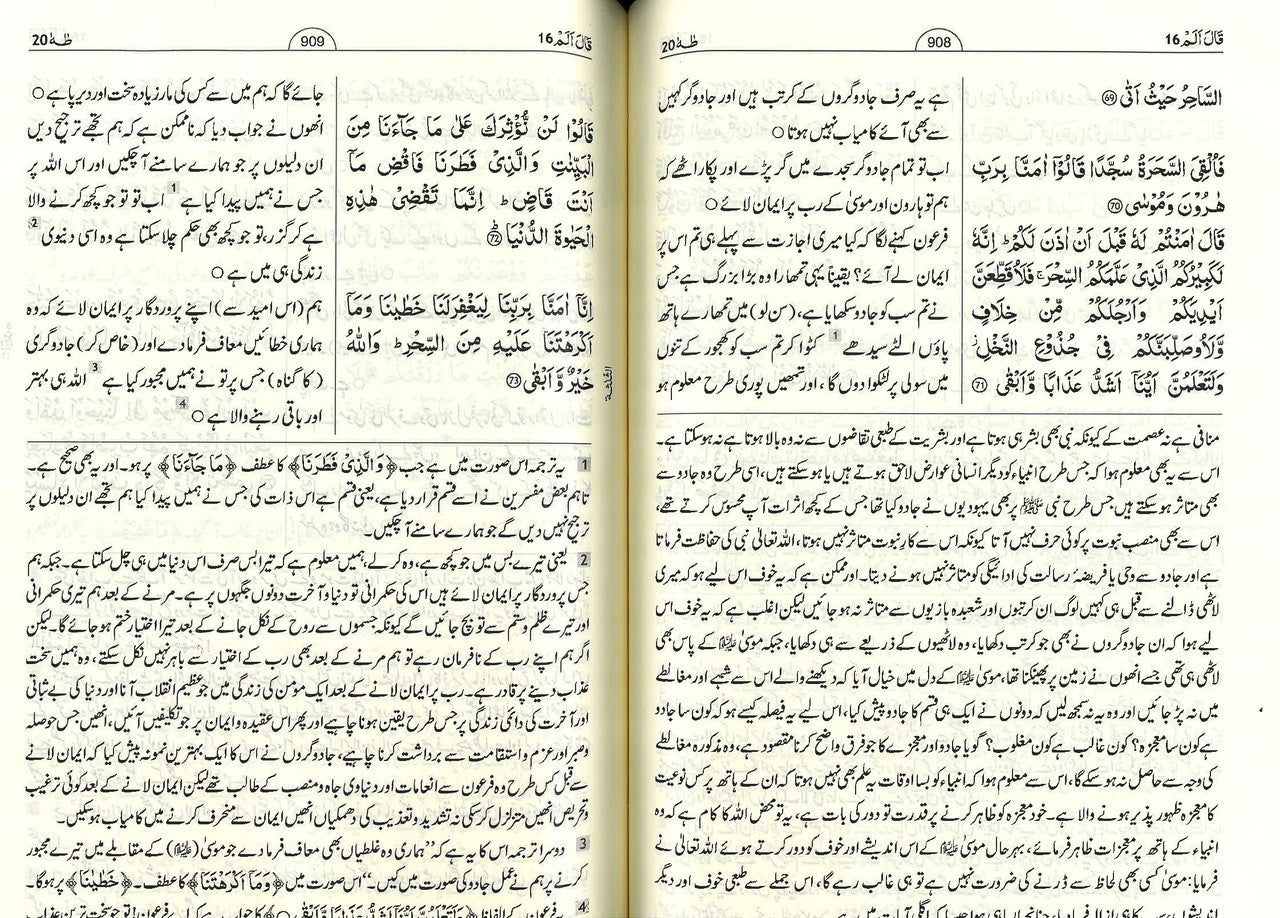 قَالَ اَلَمْ 16
908
طٰهٰ 20
السَّاحِرُ حَيْثُ اَتٰى ﴿69﴾
فَاُلْقِيَ السَّحَرَةُ سُجَّدًا قَالُوْٓا اٰمَنَّا بِرَبِّ
هٰرُوْنَ وَمُوْسٰى ﴿70﴾
قَالَ اٰمَنْتُمْ لَهٗ قَبْلَ اَنْ اٰذَنَ لَكُمْ ؕ اِنَّهٗ
لَكَبِيْرُكُمُ الَّذِيْ عَلَّمَكُمُ السِّحْرَ ۚ فَلَاُقَطِّعَنَّ
اَيْدِيَكُمْ وَاَرْجُلَكُمْ مِّنْ خِلَافٍ
وَّلَاُوصَلِّبَنَّكُمْ فِيْ جُذُوْعِ النَّخْلِ ؗ
وَلَتَعْلَمُنَّ اَيُّنَآ اَشَدُّ عَذَابًا وَّاَبْقٰى ﴿71﴾
ہے یہ صرف جادوگروں کے کرتب ہیں اور جادوگر کہیں
سے بھی آئے کامیاب نہیں ہوتا ○
اب تو تمام جادوگر سجدے میں گر پڑے اور پکار اٹھے کہ
ہم تو ہارون اور موسیٰ کے رب پر ایمان لائے ○
فرعون کہنے لگا کہ کیا میری اجازت سے پہلے ہی تم اس پر
ایمان لے آئے؟ یقیناً یہی تمھارا وہ بڑا بزرگ ہے جس
نے تم سب کو جادو سکھایا ہے، (سن لو) میں تمھارے ہاتھ
پاؤں الٹے سیدھے 1 کٹوا کر تم سب کو کھجور کے تنوں
میں سولی پر لٹکوا دوں گا، اور تمھیں پوری طرح معلوم ہو
منافی ہے نہ عصمت کے کیونکہ نبی بھی بشر ہی ہوتا ہے اور بشریت کے طبعی تقاضوں سے نہ وہ بالا ہوتا ہے نہ ہو سکتا ہے۔
اس سے یہ بھی معلوم ہوا کہ جس طرح انبیاء کو دیگر انسانی عوارض لاحق ہوتے ہیں یا ہو سکتے ہیں، اسی طرح وہ جادو سے
بھی متاثر ہو سکتے ہیں جس طرح نبی ﷺ پر بھی یہودیوں نے جادو کیا تھا جس کے کچھ اثرات آپ محسوس کرتے تھے،
اس سے بھی منصب نبوت پر کوئی حرف نہیں آتا کیونکہ اس سے کار نبوت متاثر نہیں ہوتا، اللہ تعالیٰ نبی کی حفاظت فرماتا
ہے اور جادو سے وحی یا فریضۂ رسالت کی ادائیگی کو متاثر نہیں ہونے دیتا۔ اور ممکن ہے کہ یہ خوف اس لیے ہو کہ میری
لاٹھی ڈالنے سے قبل ہی کہیں لوگ ان کرتبوں اور شعبدہ بازیوں سے متاثر نہ ہو جائیں لیکن اغلب ہے کہ یہ خوف اس
لیے ہوا کہ ان جادوگروں نے بھی جو کرتب دکھایا، وہ لاٹھیوں کے ذریعے سے ہی دکھایا، جبکہ موسیٰ علیہ السلام کے پاس بھی
لاٹھی ہی تھی جسے انھوں نے زمین پر پھینکنا تھا، موسیٰ علیہ السلام کے دل میں خیال آیا کہ دیکھنے والے اس سے شبہے اور مغالطے
میں نہ پڑ جائیں اور وہ یہ نہ سمجھ لیں کہ دونوں نے ایک ہی قسم کا جادو پیش کیا، اس لیے یہ فیصلہ کیسے ہو کہ کون سا جادو
ہے کون سا معجزہ؟ کون غالب ہے کون مغلوب؟ گویا جادو اور معجزے کا جو فرق واضح کرنا مقصود ہے، وہ مذکورہ مغالطے
کی وجہ سے حاصل نہ ہو سکے گا، اس سے معلوم ہوا کہ انبیاء کو بسا اوقات یہ علم بھی نہیں ہوتا کہ ان کے ہاتھ پر کس نوعیت
کا معجزہ ظہور پذیر ہونے والا ہے۔ خود معجزہ کو ظاہر کرنے پر قدرت تو دور کی بات ہے، یہ تو محض اللہ کا کام ہے کہ وہ
انبیاء کے ہاتھ پر معجزات ظاہر فرمائے، بہرحال موسیٰ علیہ السلام کے اس اندیشے اور خوف کو دور کرتے ہوئے اللہ تعالیٰ نے
فرمایا: موسیٰ کسی بھی لحاظ سے ڈرنے کی ضرورت نہیں ہے تو ہی غالب رہے گا، اس جملے سے طبعی خوف اور دیگر
قَالَ اَلَمْ 16
909
طٰهٰ 20
قَالُوْا لَنْ نُّؤْثِرَكَ عَلٰى مَا جَآءَنَا مِنَ
الْبَيِّنٰتِ وَالَّذِيْ فَطَرَنَا فَاقْضِ مَآ
اَنْتَ قَاضٍ ؕ اِنَّمَا تَقْضِيْ هٰذِهِ
الْحَيٰوةَ الدُّنْيَا ؕ ﴿72﴾
اِنَّآ اٰمَنَّا بِرَبِّنَا لِيَغْفِرَلَنَا خَطٰيٰنَا وَمَآ
اَكْرَهْتَنَا عَلَيْهِ مِنَ السِّحْرِ ؕ وَاللّٰهُ
خَيْرٌ وَّاَبْقٰى ﴿73﴾
جائے گا کہ ہم میں سے کس کی مار زیادہ سخت اور دیرپا ہے ○
انھوں نے جواب دیا کہ ناممکن ہے کہ ہم تجھے ترجیح دیں
ان دلیلوں پر جو ہمارے سامنے آ چکیں اور اس اللہ پر
جس نے ہمیں پیدا کیا ہے 1 اب تو تو جو کچھ کرنے والا
ہے کر گزر، تو جو کچھ بھی حکم چلا سکتا ہے وہ اسی دنیوی 2
زندگی ہی میں ہے ○
ہم (اس امید سے) اپنے پروردگار پر ایمان لائے کہ وہ
ہماری خطائیں معاف فرما دے اور (خاص کر) جادوگری
(کا گناہ) جس پر تو نے ہمیں مجبور کیا ہے 3 اللہ ہی بہتر
اور باقی رہنے والا ہے 4 ○
1 یہ ترجمہ اس صورت میں ہے جب ﴿وَالَّذِيْ فَطَرَنَا﴾ کا عطف ﴿مَا جَآءَنَا﴾ پر ہو۔ اور یہ بھی صحیح ہے۔
تاہم بعض مفسرین نے اسے قسم قرار دیا ہے، یعنی قسم ہے اس ذات کی جس نے ہمیں پیدا کیا ہم تجھے ان دلیلوں پر
ترجیح نہیں دیں گے جو ہمارے سامنے آ چکیں۔
2 یعنی تیرے بس میں جو کچھ ہے، وہ کر لے، ہمیں معلوم ہے کہ تیرا بس صرف اس دنیا میں ہی چل سکتا ہے۔ جبکہ ہم
جس پروردگار پر ایمان لائے ہیں اس کی حکمرانی تو دنیا و آخرت دونوں جگہوں پر ہے۔ مرنے کے بعد ہم تیری حکمرانی
اور تیرے ظلم و ستم سے تو بچ جائیں گے کیونکہ جسموں سے روح کے نکل جانے کے بعد تیرا اختیار ختم ہو جائے گا۔ لیکن
اگر ہم اپنے رب کے نافرمان رہے تو ہم مرنے کے بعد بھی رب کے اختیار سے باہر نہیں نکل سکتے، وہ ہمیں سخت
عذاب دینے پر قادر ہے۔ رب پر ایمان لانے کے بعد ایک مؤمن کی زندگی میں جو عظیم انقلاب آنا اور دنیا کی بے ثباتی
اور آخرت کی دائمی زندگی پر جس طرح یقین ہونا چاہیے اور پھر اس عقیدہ و ایمان پر جو تکلیفیں آئیں، انھیں جس حوصلہ
و صبر اور عزم و استقامت سے برداشت کرنا چاہیے، جادوگروں نے اس کا ایک بہترین نمونہ پیش کیا کہ ایمان لانے
سے قبل کس طرح وہ فرعون سے انعامات اور دنیاوی جاہ و منصب کے طالب تھے لیکن ایمان لانے کے بعد کوئی ترغیب
و تحریص انھیں متزلزل کر سکی نہ تشدید و تعذیب کی دھمکیاں انھیں ایمان سے منحرف کرنے میں کامیاب ہو سکیں۔
3 دوسرا ترجمہ اس کا یہ ہے کہ ”ہماری وہ غلطیاں بھی معاف فرما دے جو موسیٰ (علیہ السلام) کے مقابلے میں تیرے مجبور
کرنے پر ہم نے عمل جادو کی صورت میں کیں۔“ اس صورت میں ﴿وَمَآ اَكْرَهْتَنَا﴾ کا عطف۔ ﴿خَطٰيٰنَا﴾ پر ہوگا۔
4